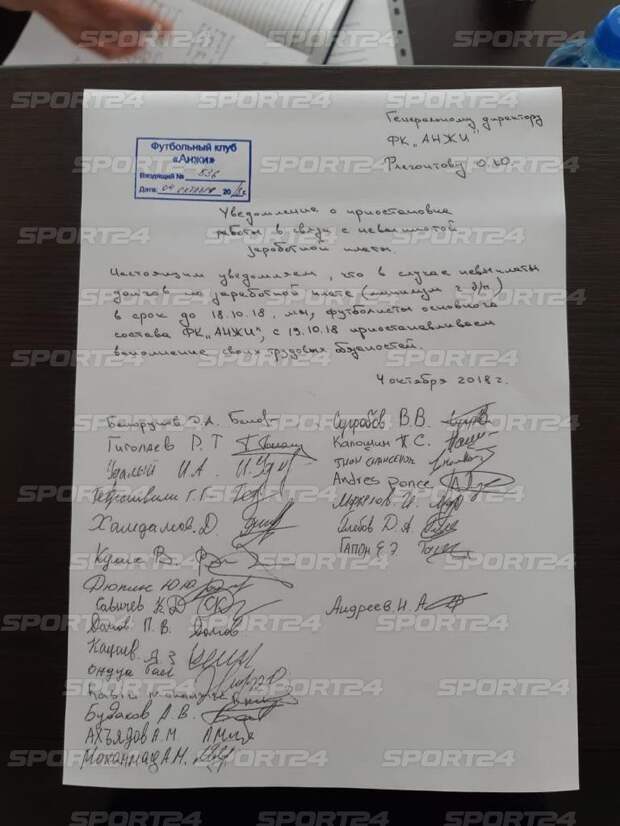 Генеральному директору
ФК „АНЖИ"
О.Ю.
Футбольный клуб
«Анжи»
Входящий № 836
Дата: 04 октября 20
Уведомление о приостановке
работы в связи с невыплатой
заработной платы.
Настоящим уведомляем, что в случае невыплаты
долгов по заработной плате (минимум 2 з/п)
в срок до 18.10.18, мы, футболисты основного
состава ФК „АНЖИ", с 19.10.18 приостанавливаем
выполнение своих трудовых обязаностей.
4 октября 2018 г.
Белоруков Д.А.
Гиголаев Г.Т
Удалый И.А.
Тетрашвили Г.Г.
Хамдамов. Д.
Кулик В.
Дюпин Юрий
Савичев К.Д
Долгов П.В. Долгов
Кацаев А.З
Ондуа Гаэль
Будаков А.В.
Ахъядов А.М
Моханмад А.М.
Сугробов В.В.
Капошин П.С.
Andres ponce
Маркелов. И.
Глебов Д.А.
Гапон Е.Э
Андреев. Н. А
SPORT24